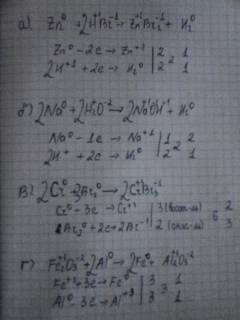 а) Zn⁰ + 2H⁺¹Br⁻¹ → Zn⁺²Br₂⁻¹ + H₂⁰
Zn⁰ - 2e → Zn⁺² | 2 | 2 | 1
2H⁺¹ + 2e → H₂⁰ | 2 | 1
б) 2Na⁰ + 2H₂⁺¹O⁻² → 2Na⁺¹OH⁺¹ + H₂⁰
Na⁰ - 1e → Na⁺¹ | 1 | 2 | 2
2H⁺ + 2e → H₂⁰ | 2 | 1
в) 2Cr⁰ + 3Br₂⁰ → 2Cr⁺³Br₃⁻¹
Cr⁰ - 3e → Cr⁺³ | 3 (восст-ль) | 6 | 2
Br₂⁰ + 2e → 2Br⁻¹ | 2 (окис-ль) | 3
г) Fe₂⁺³O₃⁻² + 2Al⁰ → 2Fe⁰ + Al₂⁺³O₃⁻²
Fe⁺³ + 3e → Fe⁰ | 3 | 3 | 1
Al⁰ - 3e → Al⁺³ | 3 | 1